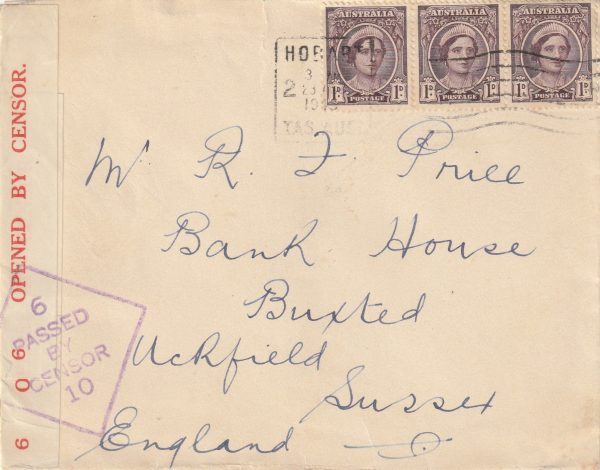 AUSTRALIA
1D POSTAGE 1D
AUSTRALIA
1D POSTAGE 1D
AUSTRALIA
1D POSTAGE 1D
HOBART
TAS. AUST
Mr R. F. Price
Bank House
Buxted
Uckfield
Sussex
England
6 0 6 OPENED BY CENSOR.
6
PASSED
BY
CENSOR
10